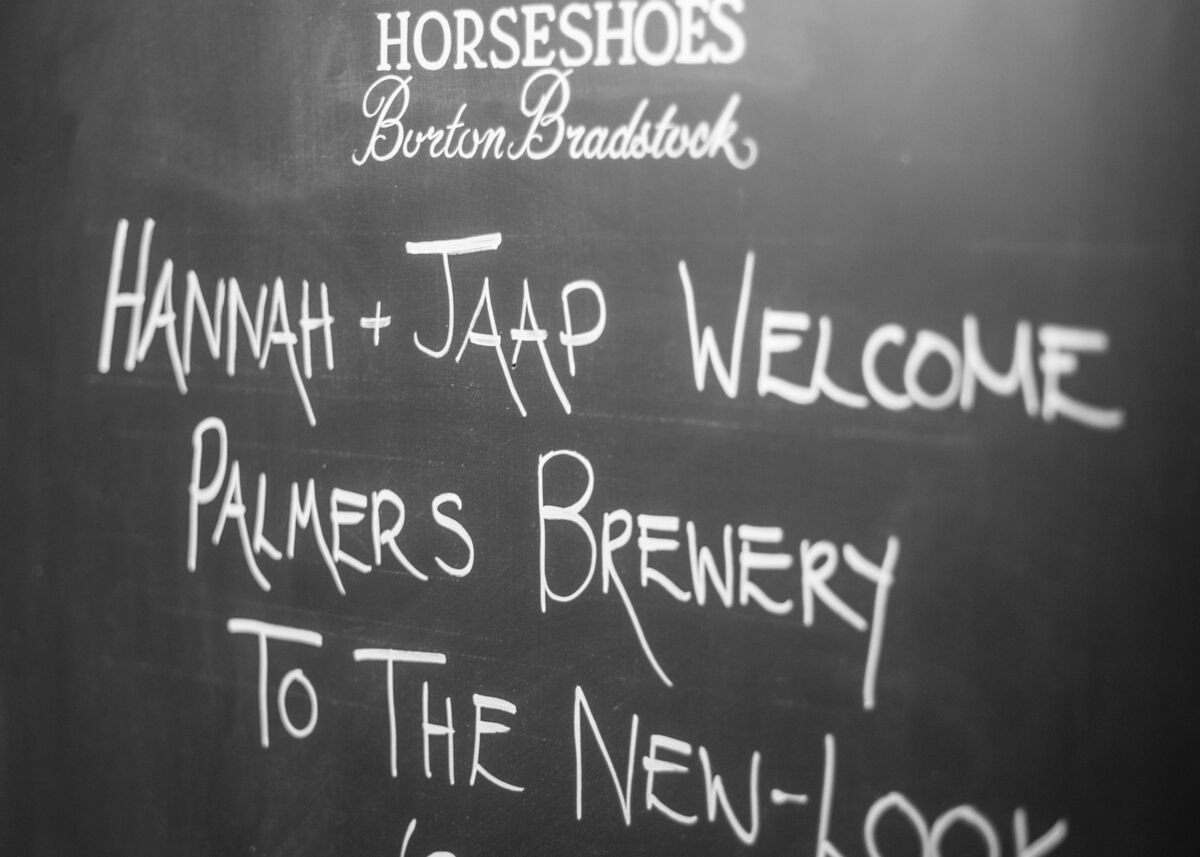 HORSESHOES
Burton Bradstock
HANNAH + JAAP WELCOME
PALMERS BREWERY
TO THE NEW-LOOK